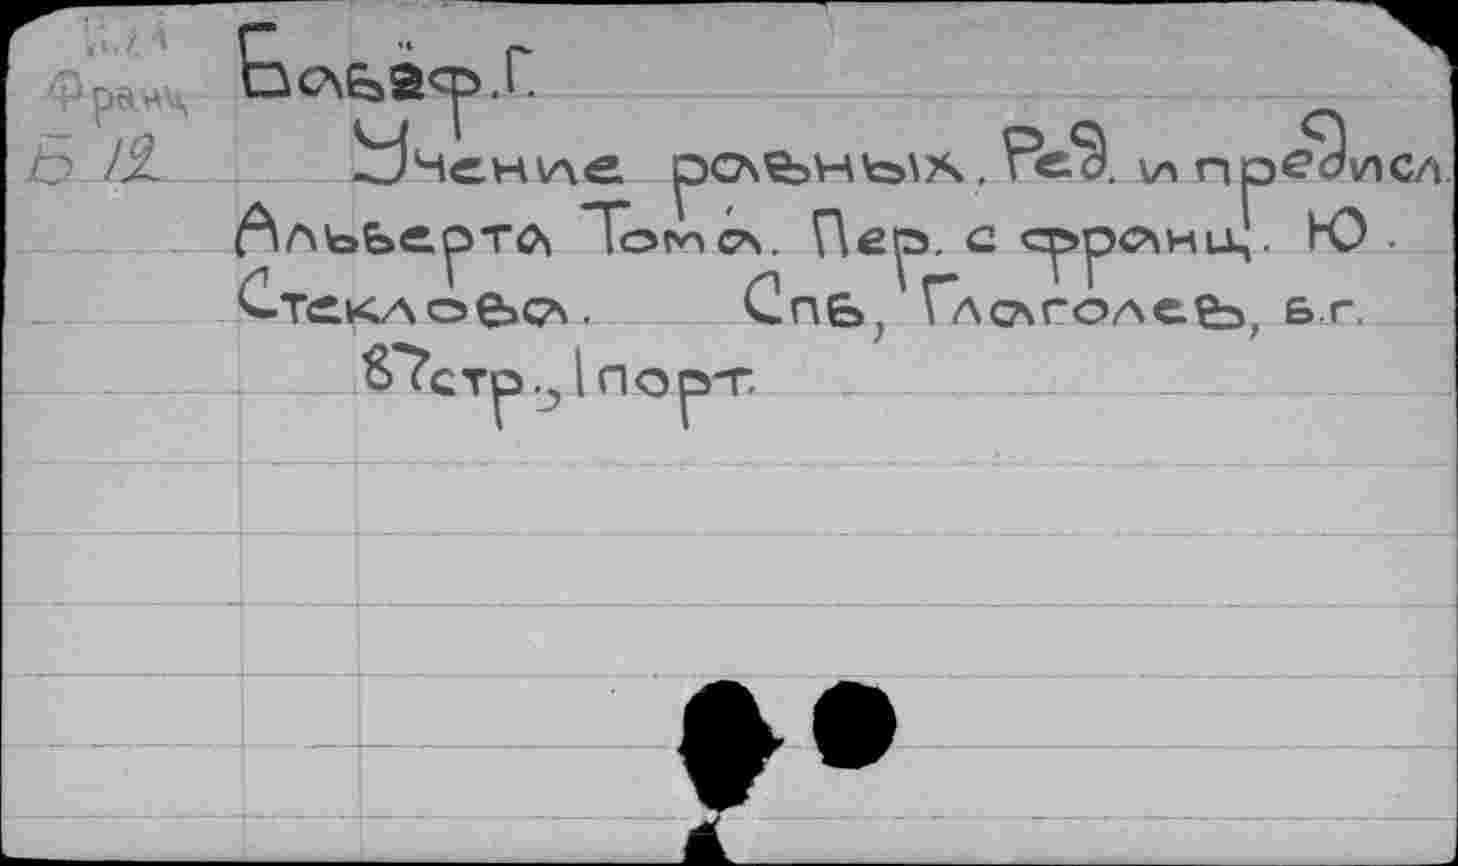 Франц
Б 12
Бабёф.Г.
Учение равных. Ред. и предисл.
Альберта Тома. Пер. с франц. Ю.
Стеклова. Спб, Глаголевъ, б.г.
87стр., 1 порт.